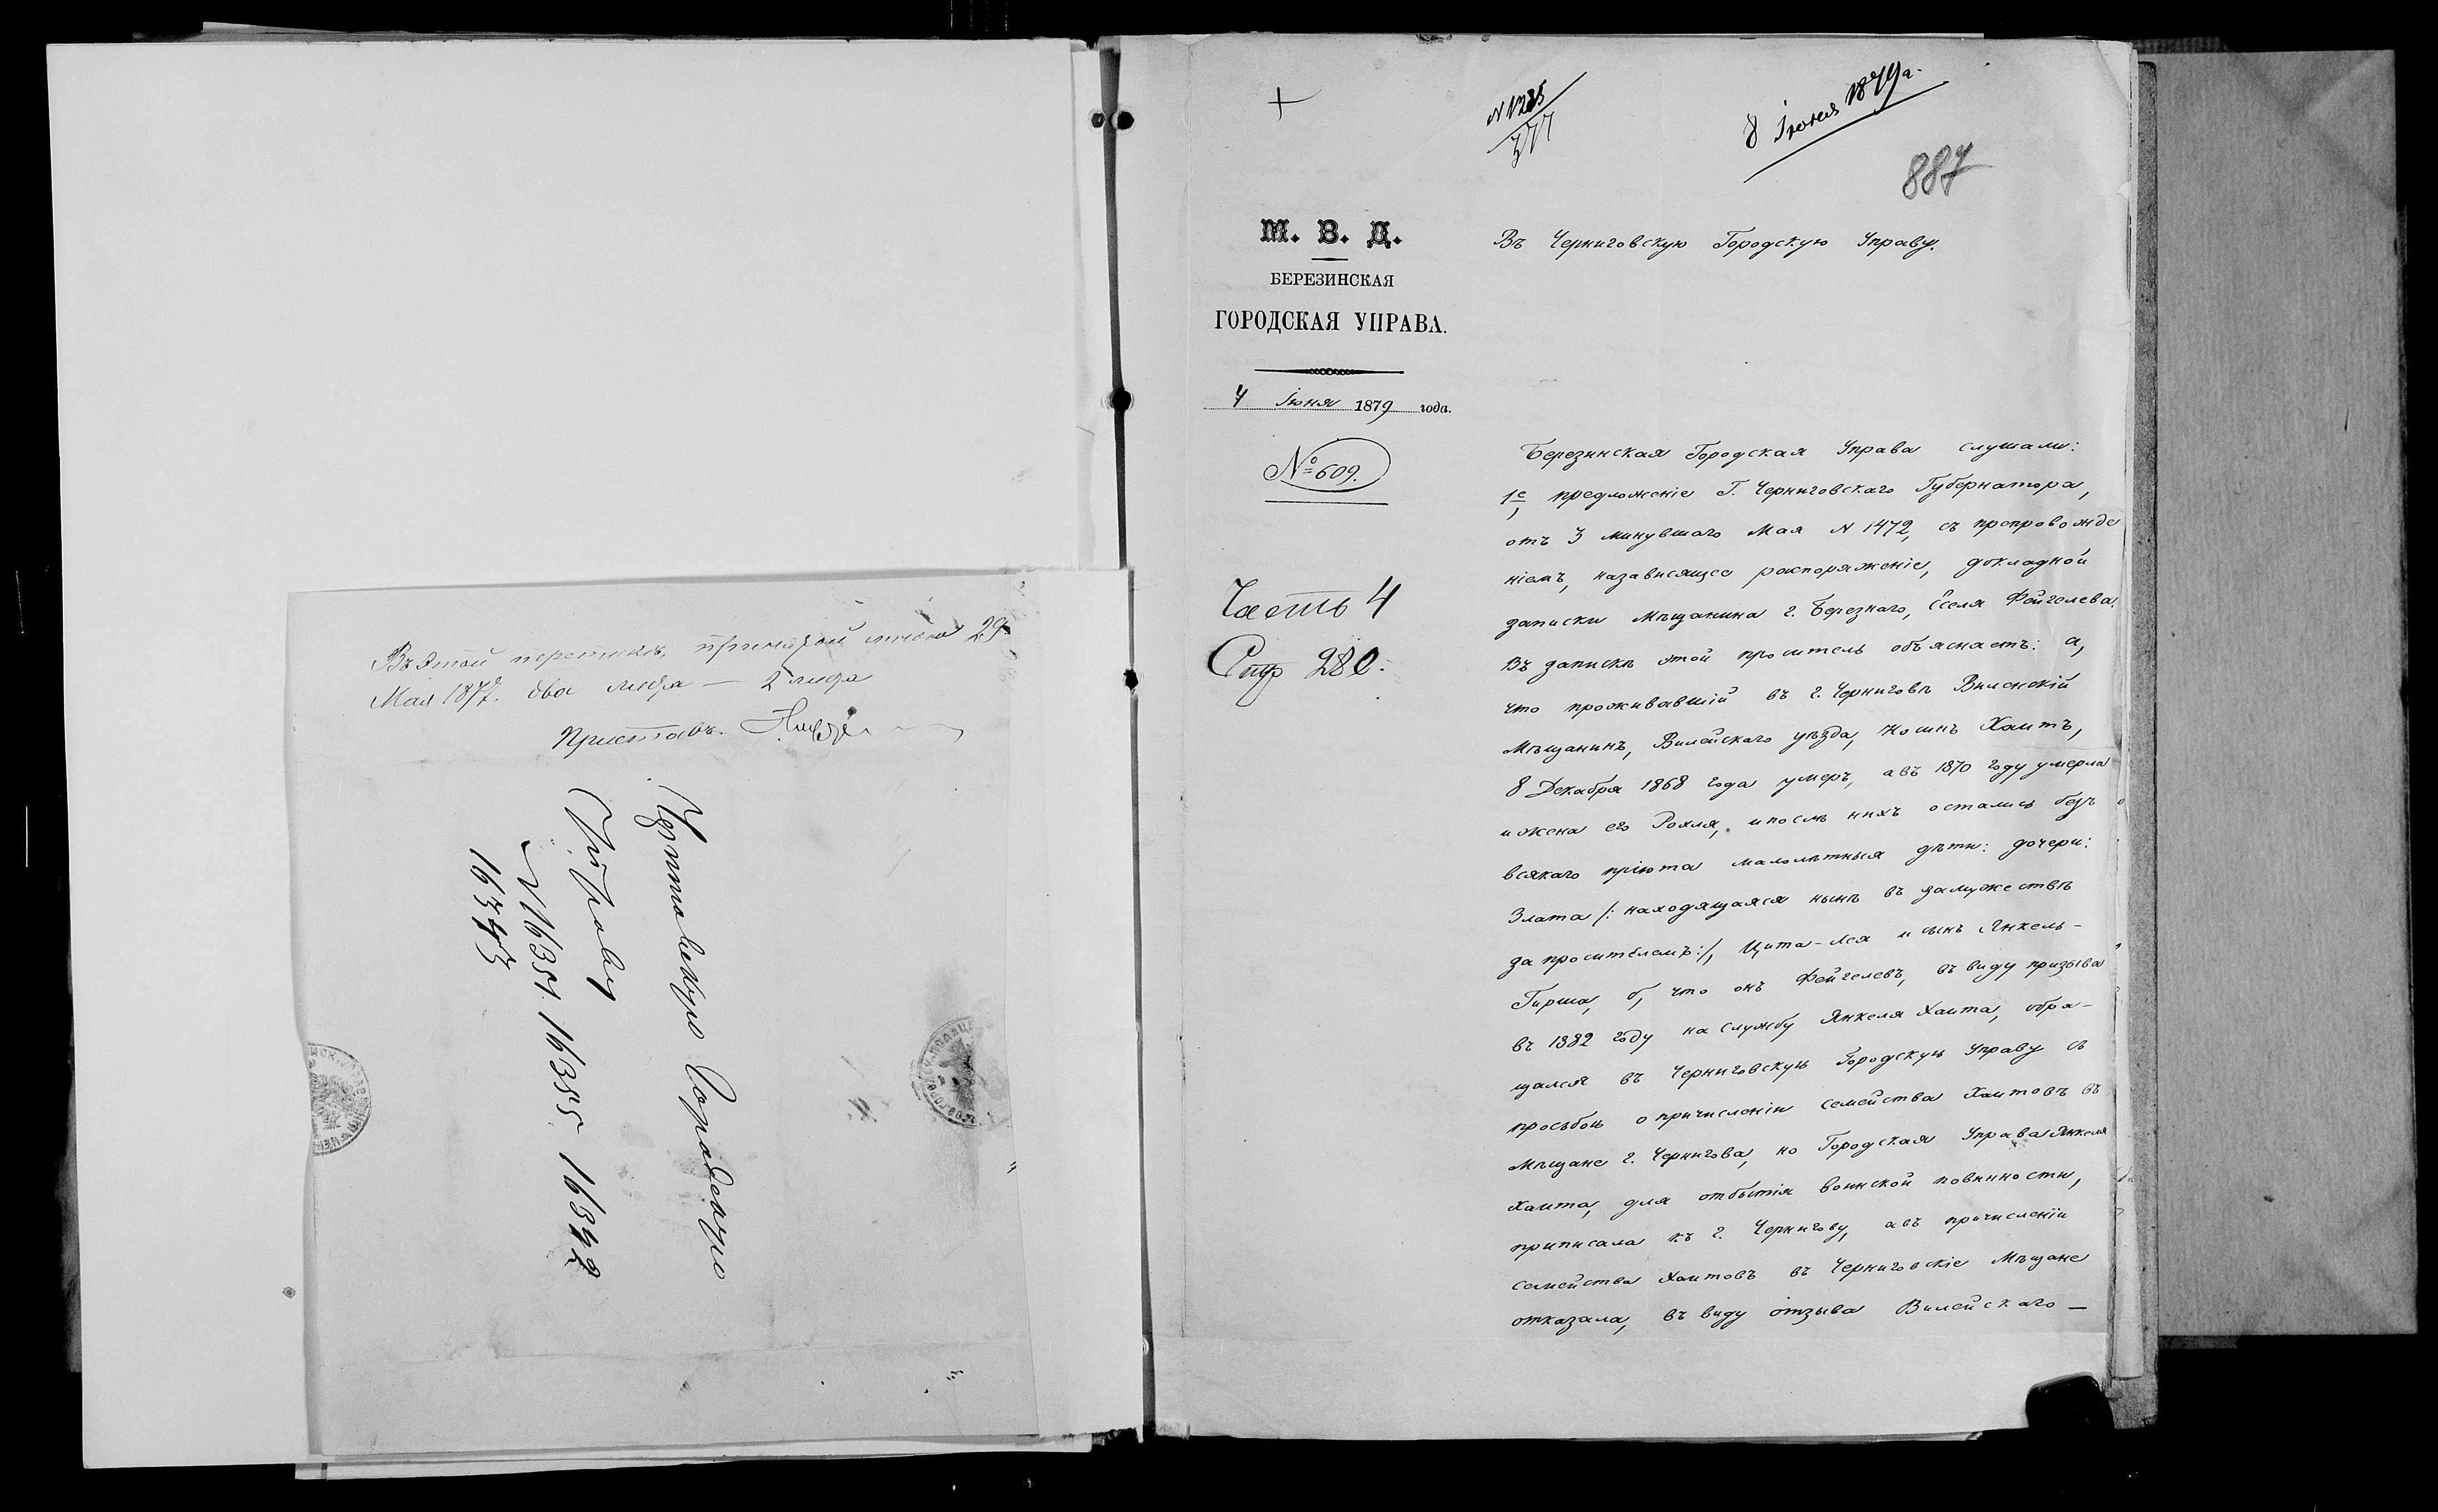 Въ этой переписке 29
Мая 1877. два листа — 2 листа
Приставъ.
Черниговскую Городскую
Управу
№ 16351. 16355 16342
16343
N 1285
377
8 Іюня 1879 г.
887
М. В. Д.
БЕРЕЗИНСКАЯ
ГОРОДСКАЯ УПРАВА.
4 Іюня 1879 года.
№ 609.
Часть 4
Стр 280.
Въ Черниговскую Городскую Управу.
Березинская Городская Управа слушали:
1е, предложеніе Г. Черниговскаго Губернатора,
отъ 3 минувшаго Мая N 1472, съ препровожде
ніемъ, назависящее распоряженіе, докладной
записки Мѣщанина г. Березнаго, Еселя Фейгелева.
Въ запискѣ этой проситель объясняетъ: а,
что проживавшій въ г. Черниговѣ Виленскій
Мѣщанинъ, Вилейскаго уѣзда, Носинъ Хаитъ,
8 Декабря 1868 года умеръ, авъ 1870 году умерла
и жена его Рохля, ипослѣ нихъ остались безъ
всякаго пріюта малолѣтныя дѣти: дочери:
Злата /: находящаяся нынѣ въ замужествѣ
за просителемъ:/, Цита-Лея и сынъ Янкель-
Гирша, б, что онъ Фейгелевъ, въ виду призыва
въ 1882 году на службу Янкеля Хаита, обра-
щался въ Черниговскую Городскую Управу съ
просьбою о причисленіи семейства Хаитовъ въ
Мѣщане г. Чернигова, но Городская Управа Янкеля
Хаита, для отбытія воинской повинности,
приписала къ г. Чернигову, авъ причисленіи
семейства Хаитовъ въ Черниговскіе Мѣщане
отказала, въ виду отзыва Вилейскаго —